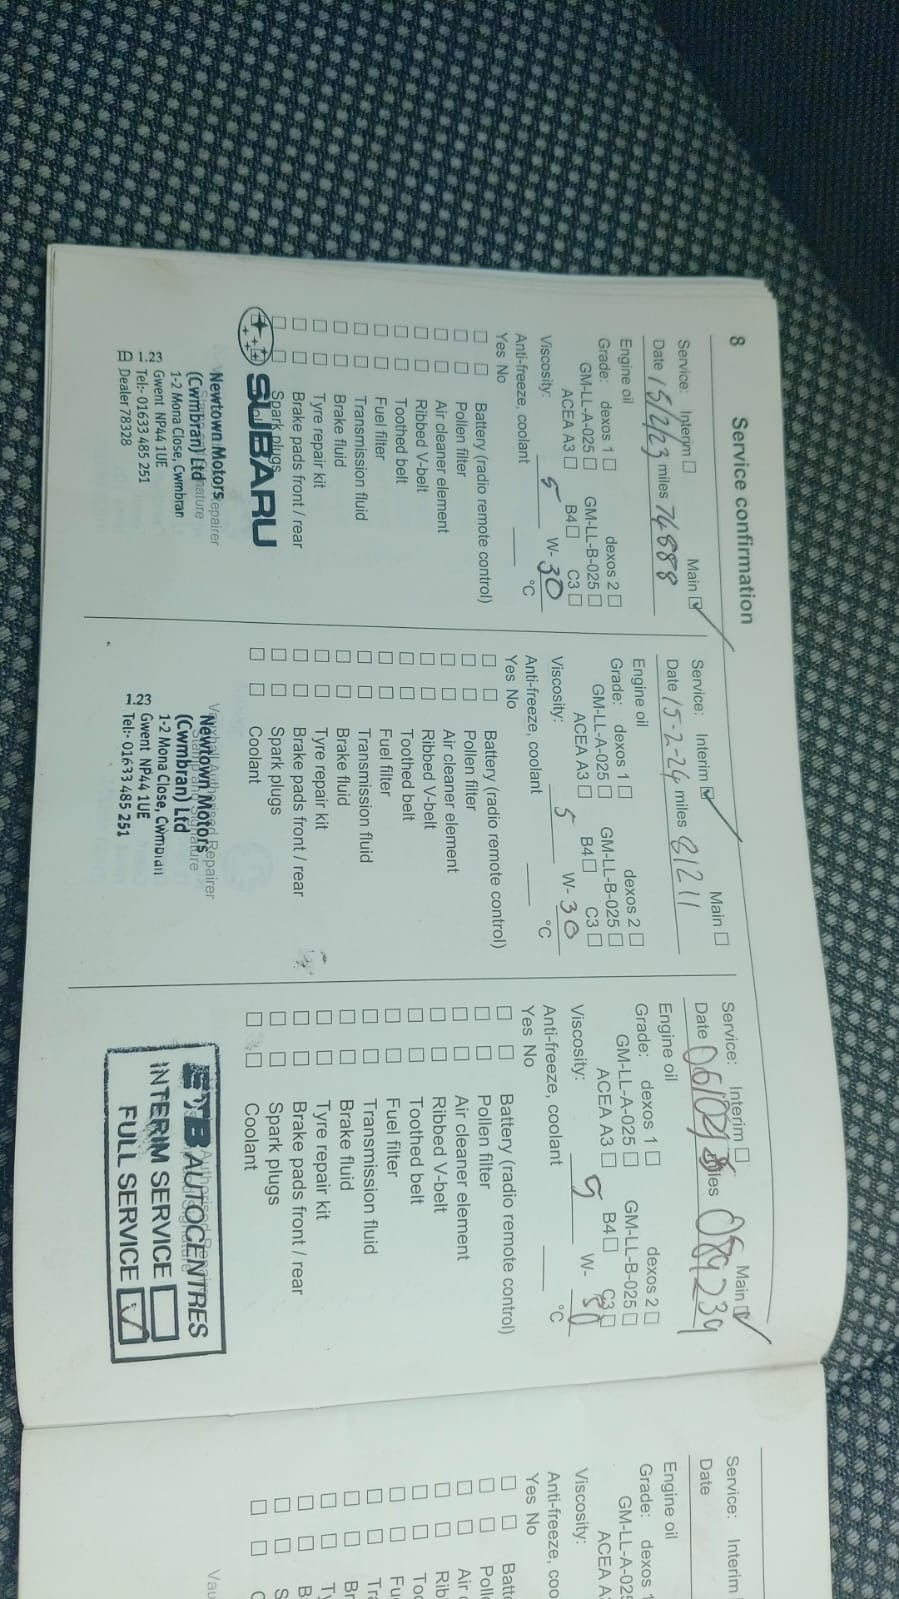 8 Service confirmation
Service: Interim ☐ Main ☑
Date 15/2/23 miles 74888
Engine oil
Grade: dexos 1 ☐ dexos 2 ☐
GM-LL-A-025 ☐ GM-LL-B-025 ☐
ACEA A3 ☐ B4 ☐ C3 ☐
Viscosity: 5 W- 30
Anti-freeze, coolant °C
Yes No
☐ ☐ Battery (radio remote control)
☐ ☐ Pollen filter
☐ ☐ Air cleaner element
☐ ☐ Ribbed V-belt
☐ ☐ Toothed belt
☐ ☐ Fuel filter
☐ ☐ Transmission fluid
☐ ☐ Brake fluid
☐ ☐ Tyre repair kit
☐ ☐ Brake pads front / rear
☐ ☐ Spark plugs
SUBARU
Newtown Motors
(Cwmbran) Ltd
1-2 Mona Close, Cwmbran
1.23 Gwent NP44 1UE
Tel:- 01633 485 251
Dealer 78328
Service: Interim ☑ Main ☐
Date 15-2-24 miles 81211
Engine oil
Grade: dexos 1 ☐ dexos 2 ☐
GM-LL-A-025 ☐ GM-LL-B-025 ☐
ACEA A3 ☐ B4 ☐ C3 ☐
Viscosity: 5 W- 30
Anti-freeze, coolant °C
Yes No
☐ ☐ Battery (radio remote control)
☐ ☐ Pollen filter
☐ ☐ Air cleaner element
☐ ☐ Ribbed V-belt
☐ ☐ Toothed belt
☐ ☐ Fuel filter
☐ ☐ Transmission fluid
☐ ☐ Brake fluid
☐ ☐ Tyre repair kit
☐ ☐ Brake pads front / rear
☐ ☐ Spark plugs
☐ ☐ Coolant
Vauxhall Authorised Repairer
Stamp and signature
Newtown Motors
(Cwmbran) Ltd
1-2 Mona Close, Cwmbran
1.23 Gwent NP44 1UE
Tel:- 01633 485 251
Service: Interim ☐ Main ☑
Date miles 084239
Engine oil
Grade: dexos 1 ☐ dexos 2 ☐
GM-LL-A-025 ☐ GM-LL-B-025 ☐
ACEA A3 ☐ B4 ☐ C3 ☐
Viscosity: 5 W- 30
Anti-freeze, coolant °C
Yes No
☐ ☐ Battery (radio remote control)
☐ ☐ Pollen filter
☐ ☐ Air cleaner element
☐ ☐ Ribbed V-belt
☐ ☐ Toothed belt
☐ ☐ Fuel filter
☐ ☐ Transmission fluid
☐ ☐ Brake fluid
☐ ☐ Tyre repair kit
☐ ☐ Brake pads front / rear
☐ ☐ Spark plugs
☐ ☐ Coolant
ETB AUTOCENTRES
INTERIM SERVICE ☐
FULL SERVICE ☑
Service: Interim
Date
Engine oil
Grade: dexos 1
GM-LL-A-025
ACEA A
Viscosity:
Anti-freeze, coo
Yes No
☐ ☐ Batte
☐ ☐ Polle
☐ ☐ Air c
☐ ☐ Rib
☐ ☐ Too
☐ ☐ Fu
☐ ☐ Tr
☐ ☐ Br
☐ ☐ Ty
☐ ☐ B
☐ ☐ S
☐ ☐ C
Vau